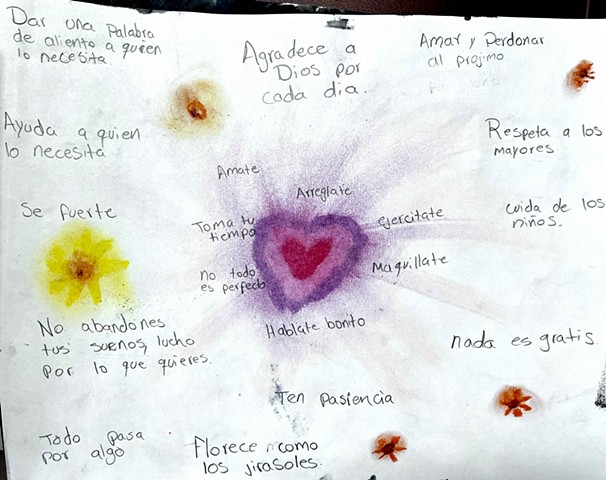 Dar una Palabra
de aliento a quien
lo necesita.
Agradece a
Dios por
cada dia.
Amar y Perdonar
al projimo
Ayuda a quien
lo necesita
Respeta a los
mayores
Amate
Arreglate
Se fuerte
Toma tu
tiempo
ejercitate
cuida de los
niños.
no todo
es perfecto
Maquillate
Hablate bonito
No abandones
tus sueños, lucho
por lo que quieres.
nada es gratis.
Ten pasiencia
Todo pasa
por algo
florece como
los jirasoles.